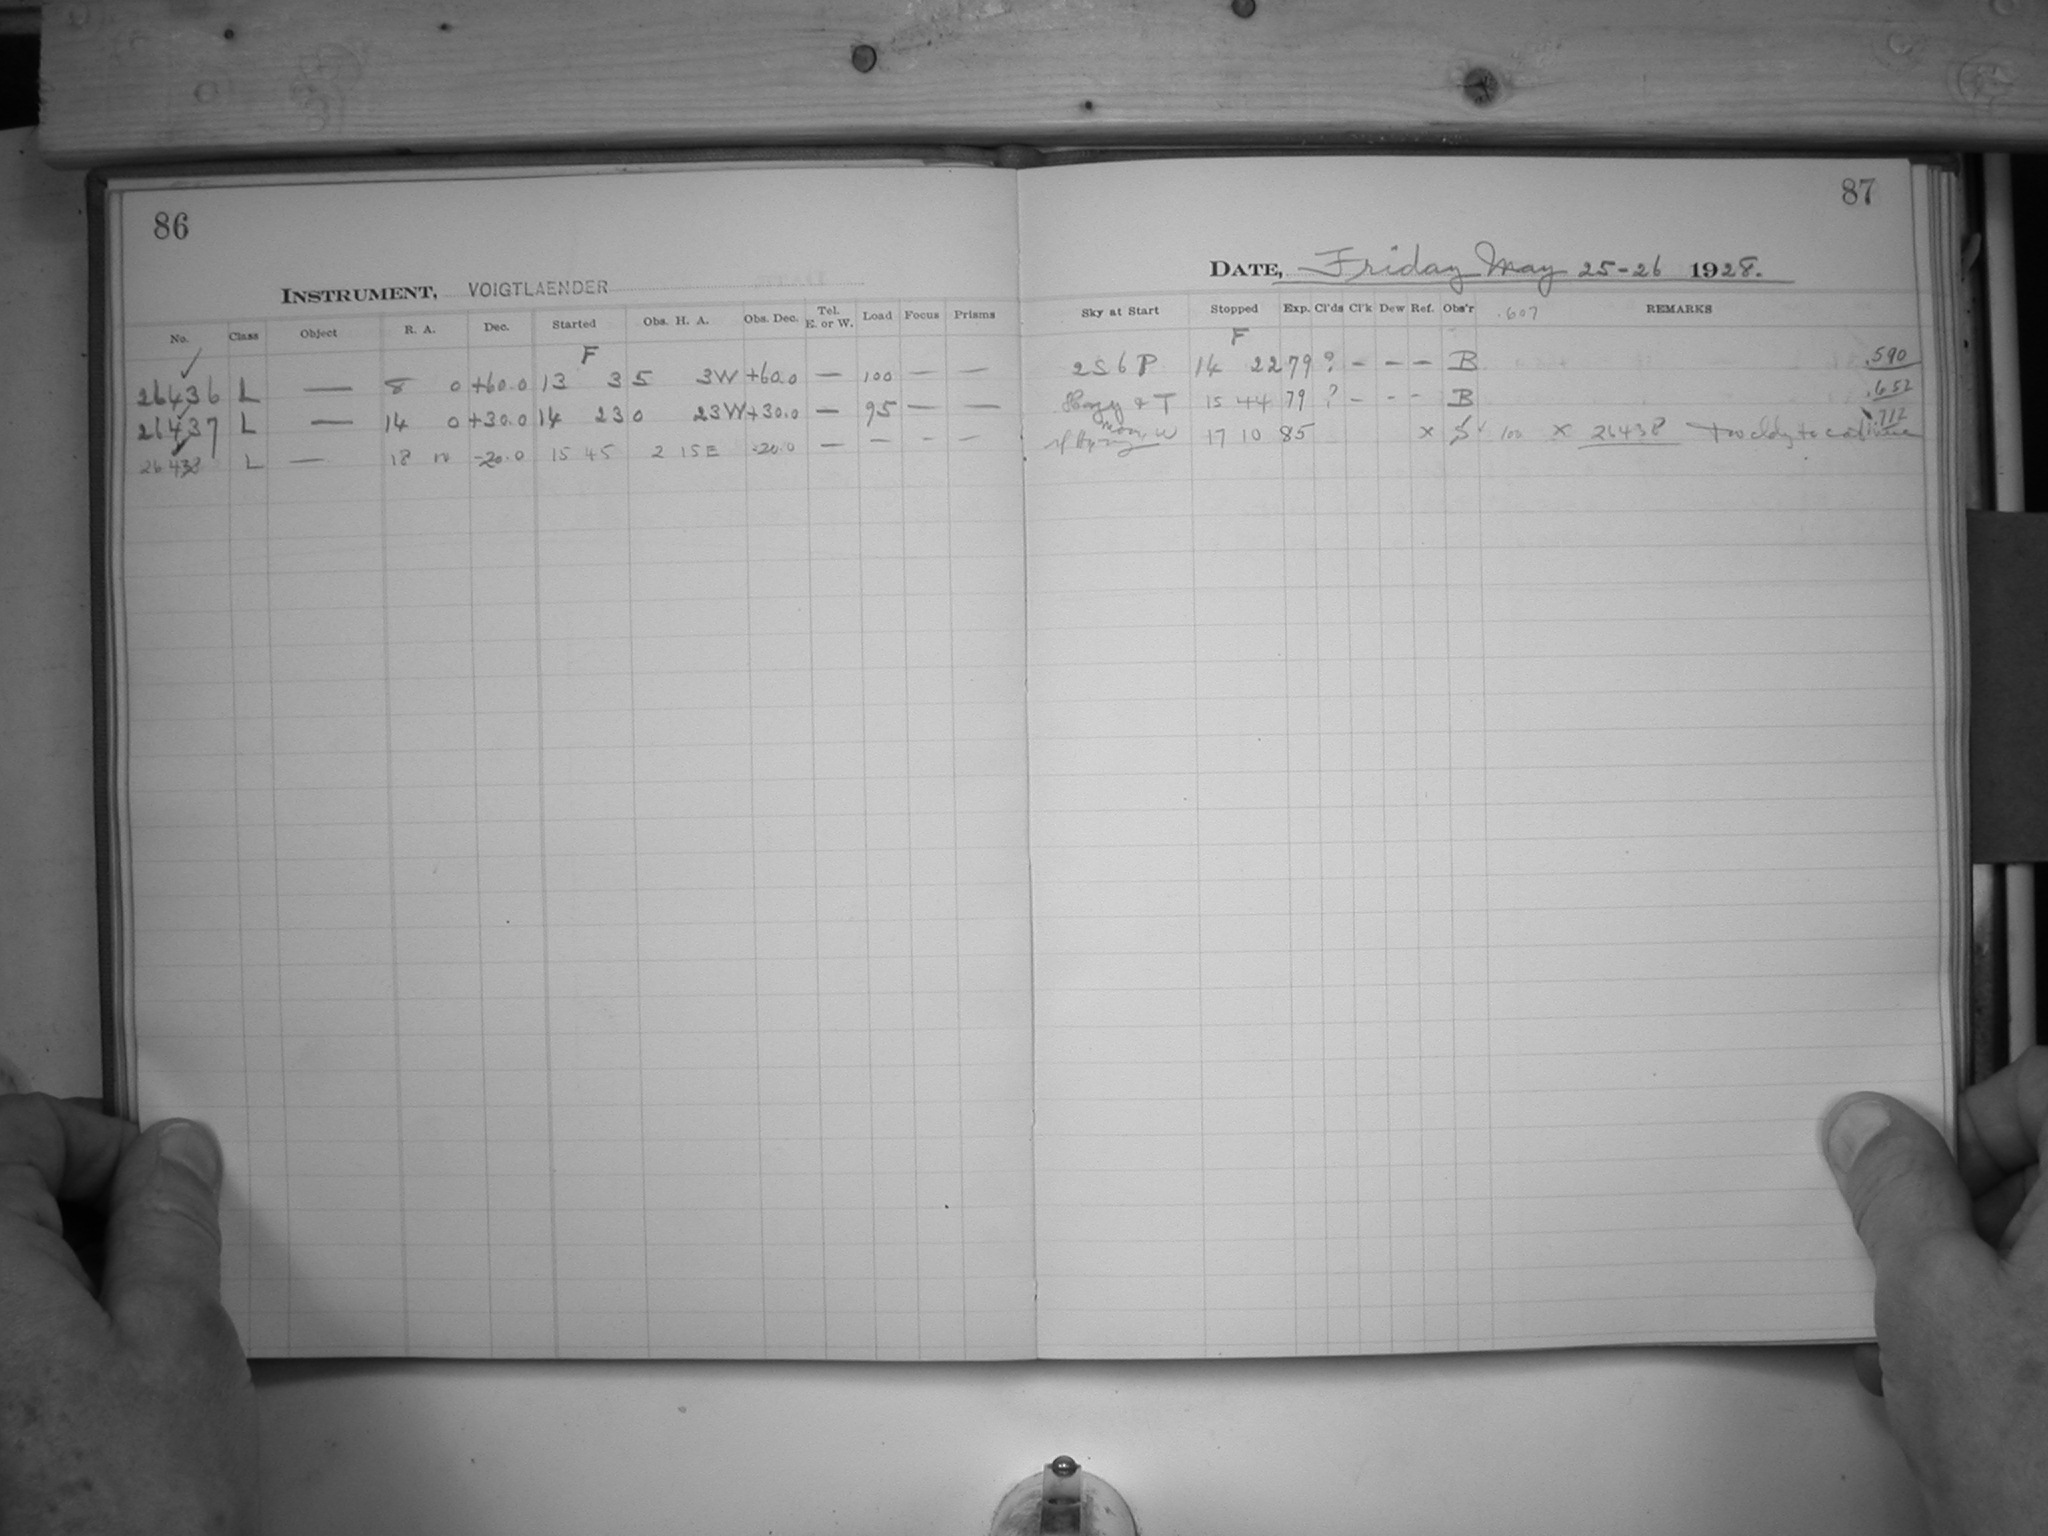 86
INSTRUMENT, VOIGTLAENDER
No. Class Object R. A. Dec. Started Obs. H. A. Obs. Dec. Tel. E. or W. Load Focus Prisms
F
26436 L — 8 0 +60.0 13 3 5 3W +60.0 — 100 — —
26437 L — 14 0 +30.0 14 23 0 23W +30.0 — 95 — —
26438 L — 18 10 -20.0 15 45 2 15E -20.0 — — - —
87
DATE, Friday May 25-26 1928.
Sky at Start Stopped Exp. Cl'ds Cl'k Dew Ref. Obs'r .607 REMARKS
F
2S6P 14 22 79 ? — — — B .590
Hazy & T 15 44 79 ? — - - B .652
Moon, W 17 10 85 x S 100 x 26438 Too cldy to continue .712